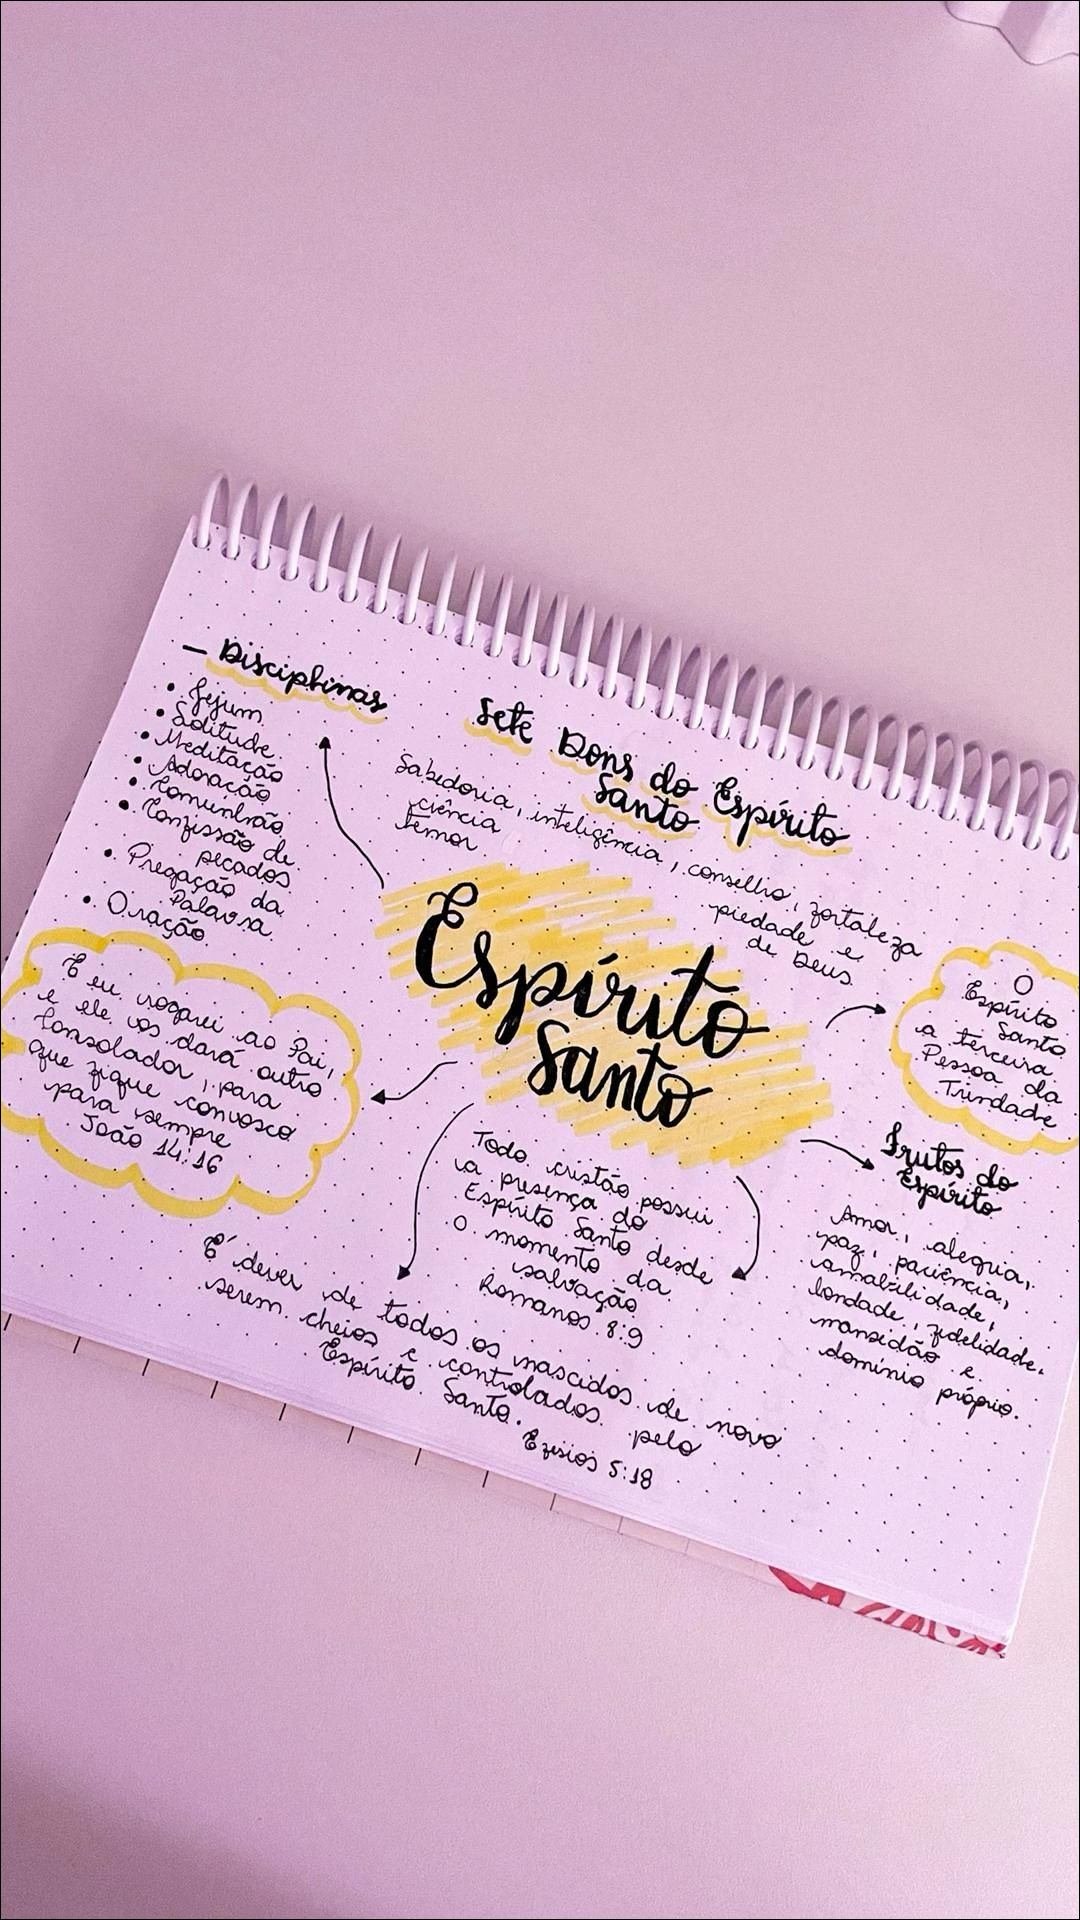 — Disciplinas
• Jejum
• Solitude
• Meditação
• Adoração
• Comunhão
• Confissão de
pecados
• Pregação da
Palavra
• Oração
Sete Dons do Espírito
Santo
Sabedoria, inteligência, conselho, fortaleza
ciência
piedade e
temor
de Deus
Espírito
Santo
O
Espírito
Santo
a terceira
Pessoa da
Trindade
E eu rogarei ao Pai,
e ele vos dará outro
Consolador, para
que fique convosco
para sempre
João 14:16
Todo cristão possui
a presença do
Espírito Santo desde
o momento da
salvação
Romanos 8:9
Frutos do
Espírito
Amor, alegria,
paz, paciência,
amabilidade,
bondade, fidelidade,
mansidão e
domínio próprio.
É dever de todos os nascidos de novo
serem cheios e controlados pelo
Espírito Santo.
Efésios 5:18